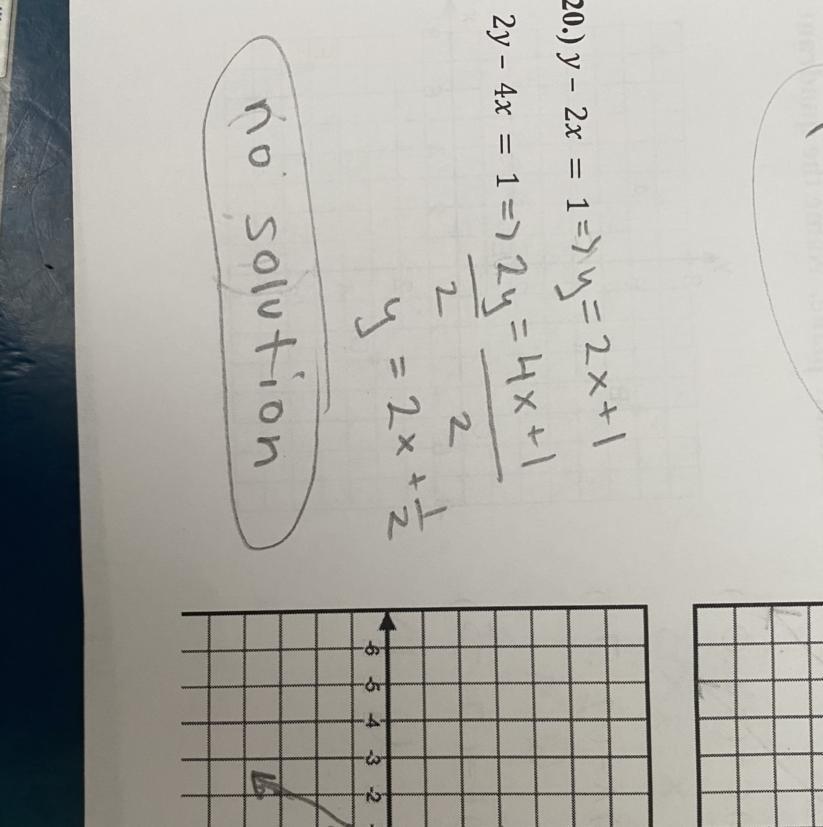 20.) y - 2x = 1 => y = 2x + 1
2y - 4x = 1 => 2y = 4x + 1
2 2
y = 2x + 1/2
no solution
-6 -5 -4 -3 -2